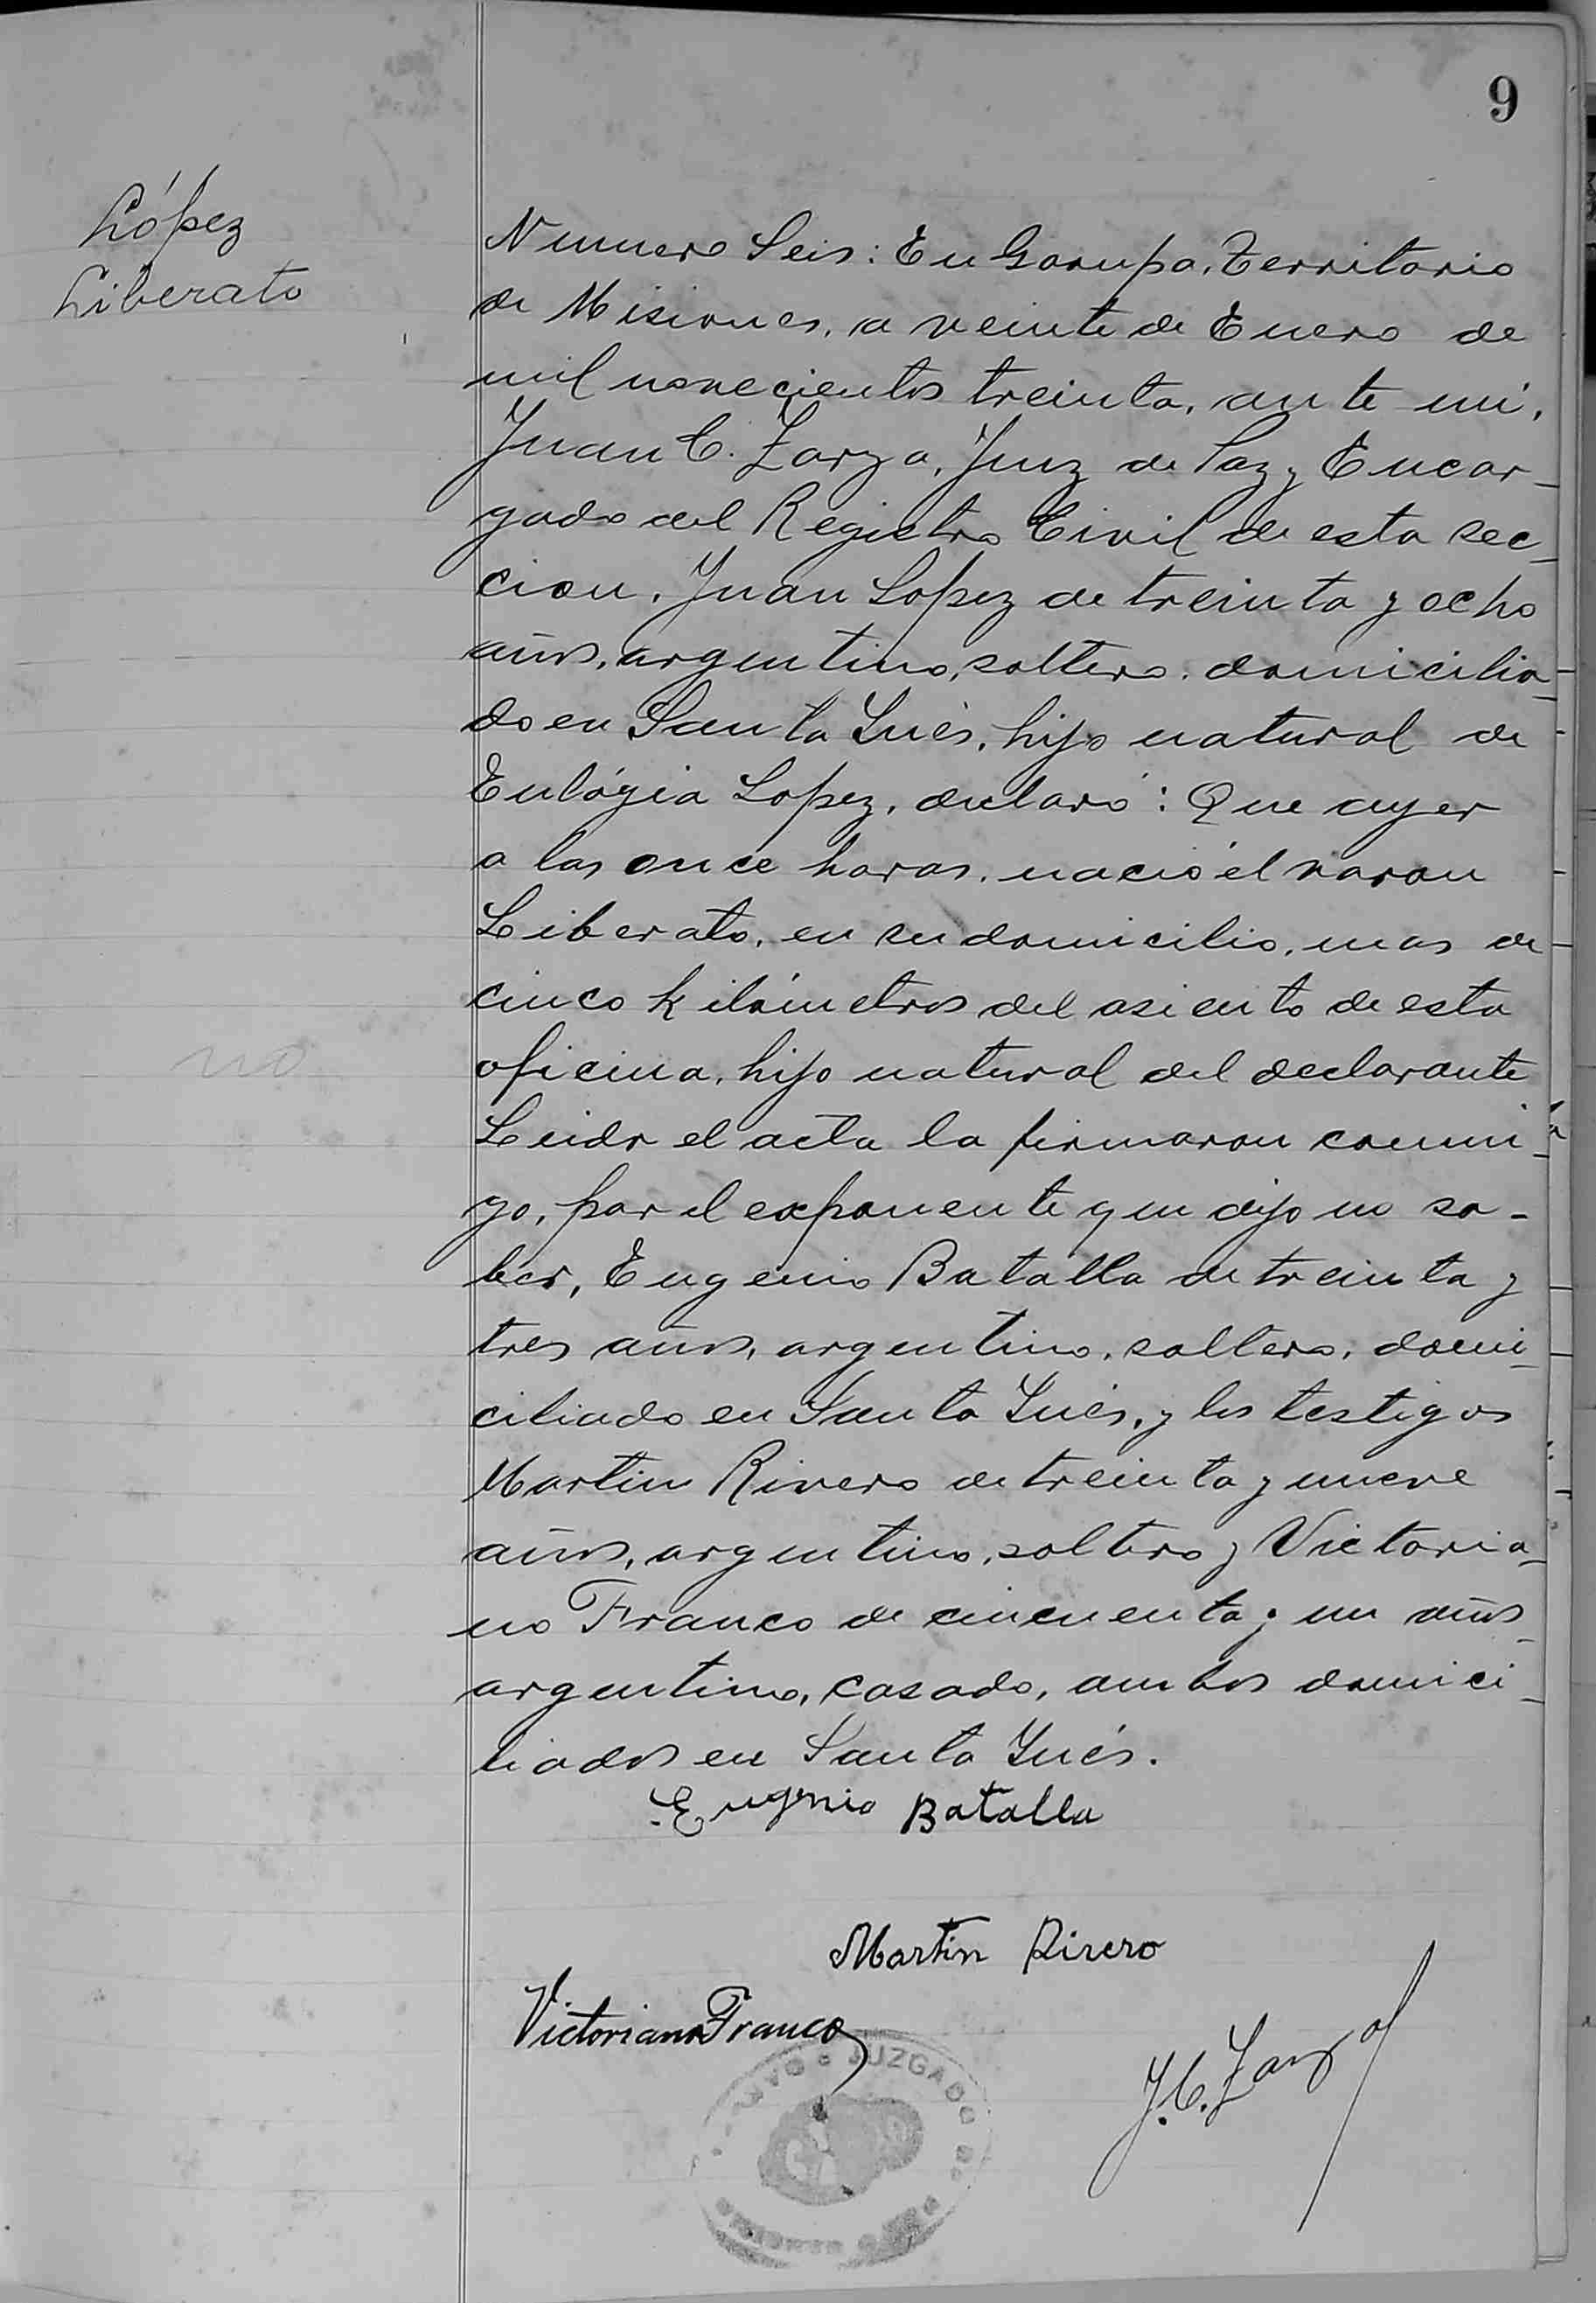 9
López
Liberato
Numero Seis: En Garupa, Territorio
de Misiones, a veinte de Enero de
mil novecientos treinta, ante mi,
Juan C. Zarza, Juez de Paz y Encar-
gado del Registro Civil de esta sec-
cion, Juan Lopez de treinta y ocho
años, argentino, soltero, domicilia-
do en Santa Inés, hijo natural de
Eulógia Lopez, declaró: Que ayer
a las once horas, nació el varon
Liberato, en su domicilio, mas de
cinco kilómetros del asiento de esta
oficina, hijo natural del declarante
Leida el acta la firmaron conmi-
go, por el exponente que dijo no sa-
ber, Eugenio Batalla de treinta y
tres años, argentino, soltero, domi-
ciliado en Santa Inés, y los testigos
Martin Rivero de treinta y nueve
años, argentino, soltero y Victoria-
no Franco de cincuenta y un años
argentino, casado, ambos domici-
liados en Santa Inés.
no
Eugenio Batalla
Martin Rivero
Victoriano Franco
J. C. Zarza
JUZGADO DE